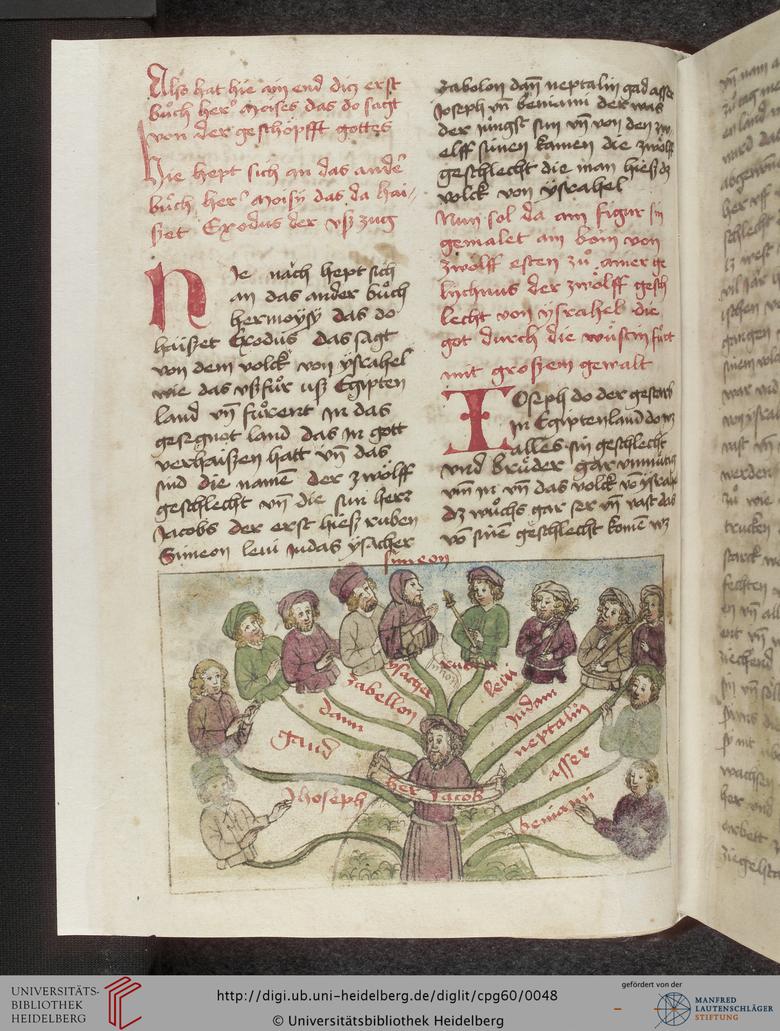 Also hat hie ain end diz erst
bůch her moises das do sagt
von der geschöpfft gottes
Hie hept sich an das ander
bůch her moisy das da hai-
szet Exodus der vsz zug
Nie näch hept sich
an das ander bůch
hermoÿsÿ das do
häiszet Exodus das sagt
von dem volck von ÿsrahel
wie das vszfůr usz Egipten
land vn̄ fůrent in das
gesegnet land das in gott
verhaiszen hatt vn̄ das
sind die namē der zwölff
geschlecht vn̄ die sun herz
Jacobs der erst hiesz ruben
Simeon leui Judas ÿsacher
zabolon dan̄ neptalin gad asser
Joseph vn̄ beniamī der was
der jüngst sun vn̄ von den zw-
elff sünen kamen die zwölff
geschlecht die man hiesz dz
volck von ÿsrahel
Nun sol da ain figur sin
gemalet ain bom von
zwölff esten zů ainer ge
lychnus der zwölff gesch
lecht von ÿsrahel die
got durch die wüstin fůrt
mit groszem gewalt
IOseph do der gestarb
in Egiptenland do
alles sin geschlecht
vnd brüder gar
vm̄ in vn̄ das volck vō ÿsrahel
dz wůchs gar ser vn̄ vast das
vō sinē geschlecht komē wz
simeon
ysacher
ruben
leui
zabellon
judam
dann
neptalin
gaud
asser
Jhoseph
her Jacob
beniamī
UNIVERSITÄTS-
BIBLIOTHEK
HEIDELBERG
http://digi.ub.uni-heidelberg.de/diglit/cpg60/0048
© Universitätsbibliothek Heidelberg
gefördert von der
MANFRED
LAUTENSCHLÄGER
STIFTUNG